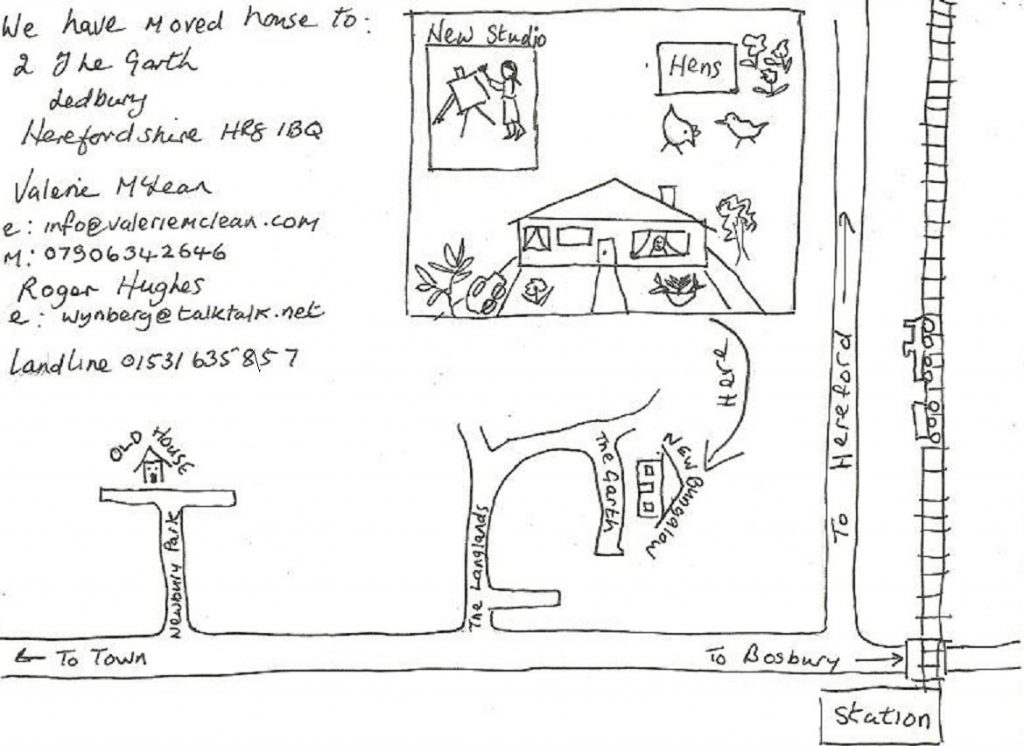 We have moved house to:
2 The Garth
Ledbury
Herefordshire HR8 1BQ
Valerie McLean
e: info@valeriemclean.com
M: 07906342646
Roger Hughes
e: wynberg@talktalk.net
Landline 01531 635857
New Studio
Hens
Here
To Hereford
OLD HOUSE
Newbury Park
The Langlands
The Garth
New Bungalow
To Town
To Bosbury
Station